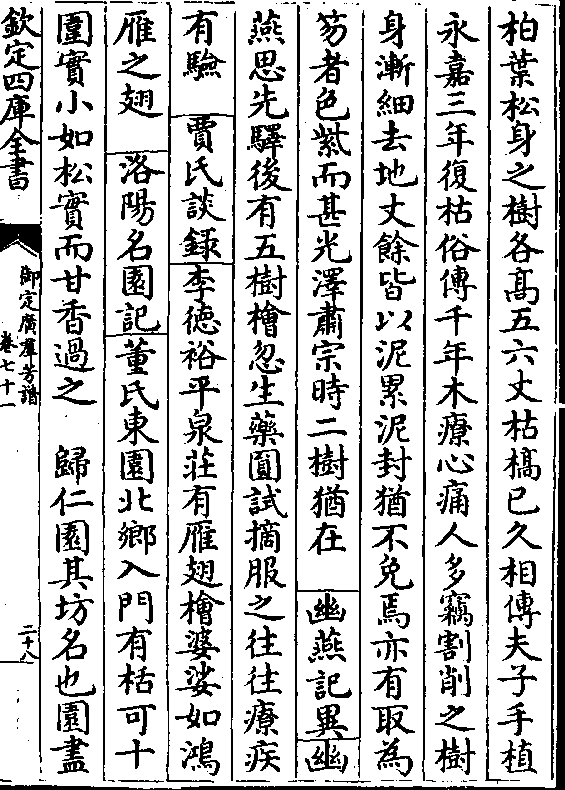 柏葉松身之樹各髙五六丈枯槁已久相傳夫子手植
永嘉三年復枯俗傳千年木療心痛人多竊割削之樹
身漸細去地丈餘皆以泥累泥封猶不免焉亦有取為
笏者色紫而甚光澤肅宗時二樹猶在 幽燕記異幽
燕思先驛後有五樹檜忽生藥圎試摘服之往往療疾
有驗 賈氏談錄李徳裕平泉莊有雁翅檜婆娑如鴻
雁之翅 洛陽名園記董氏東園北鄉入門有栝可十
圍實小如松實而甘香過之 歸仁園其坊名也園盡
欽定四庫全書
御定廣羣芳譜
卷七十一
二十八